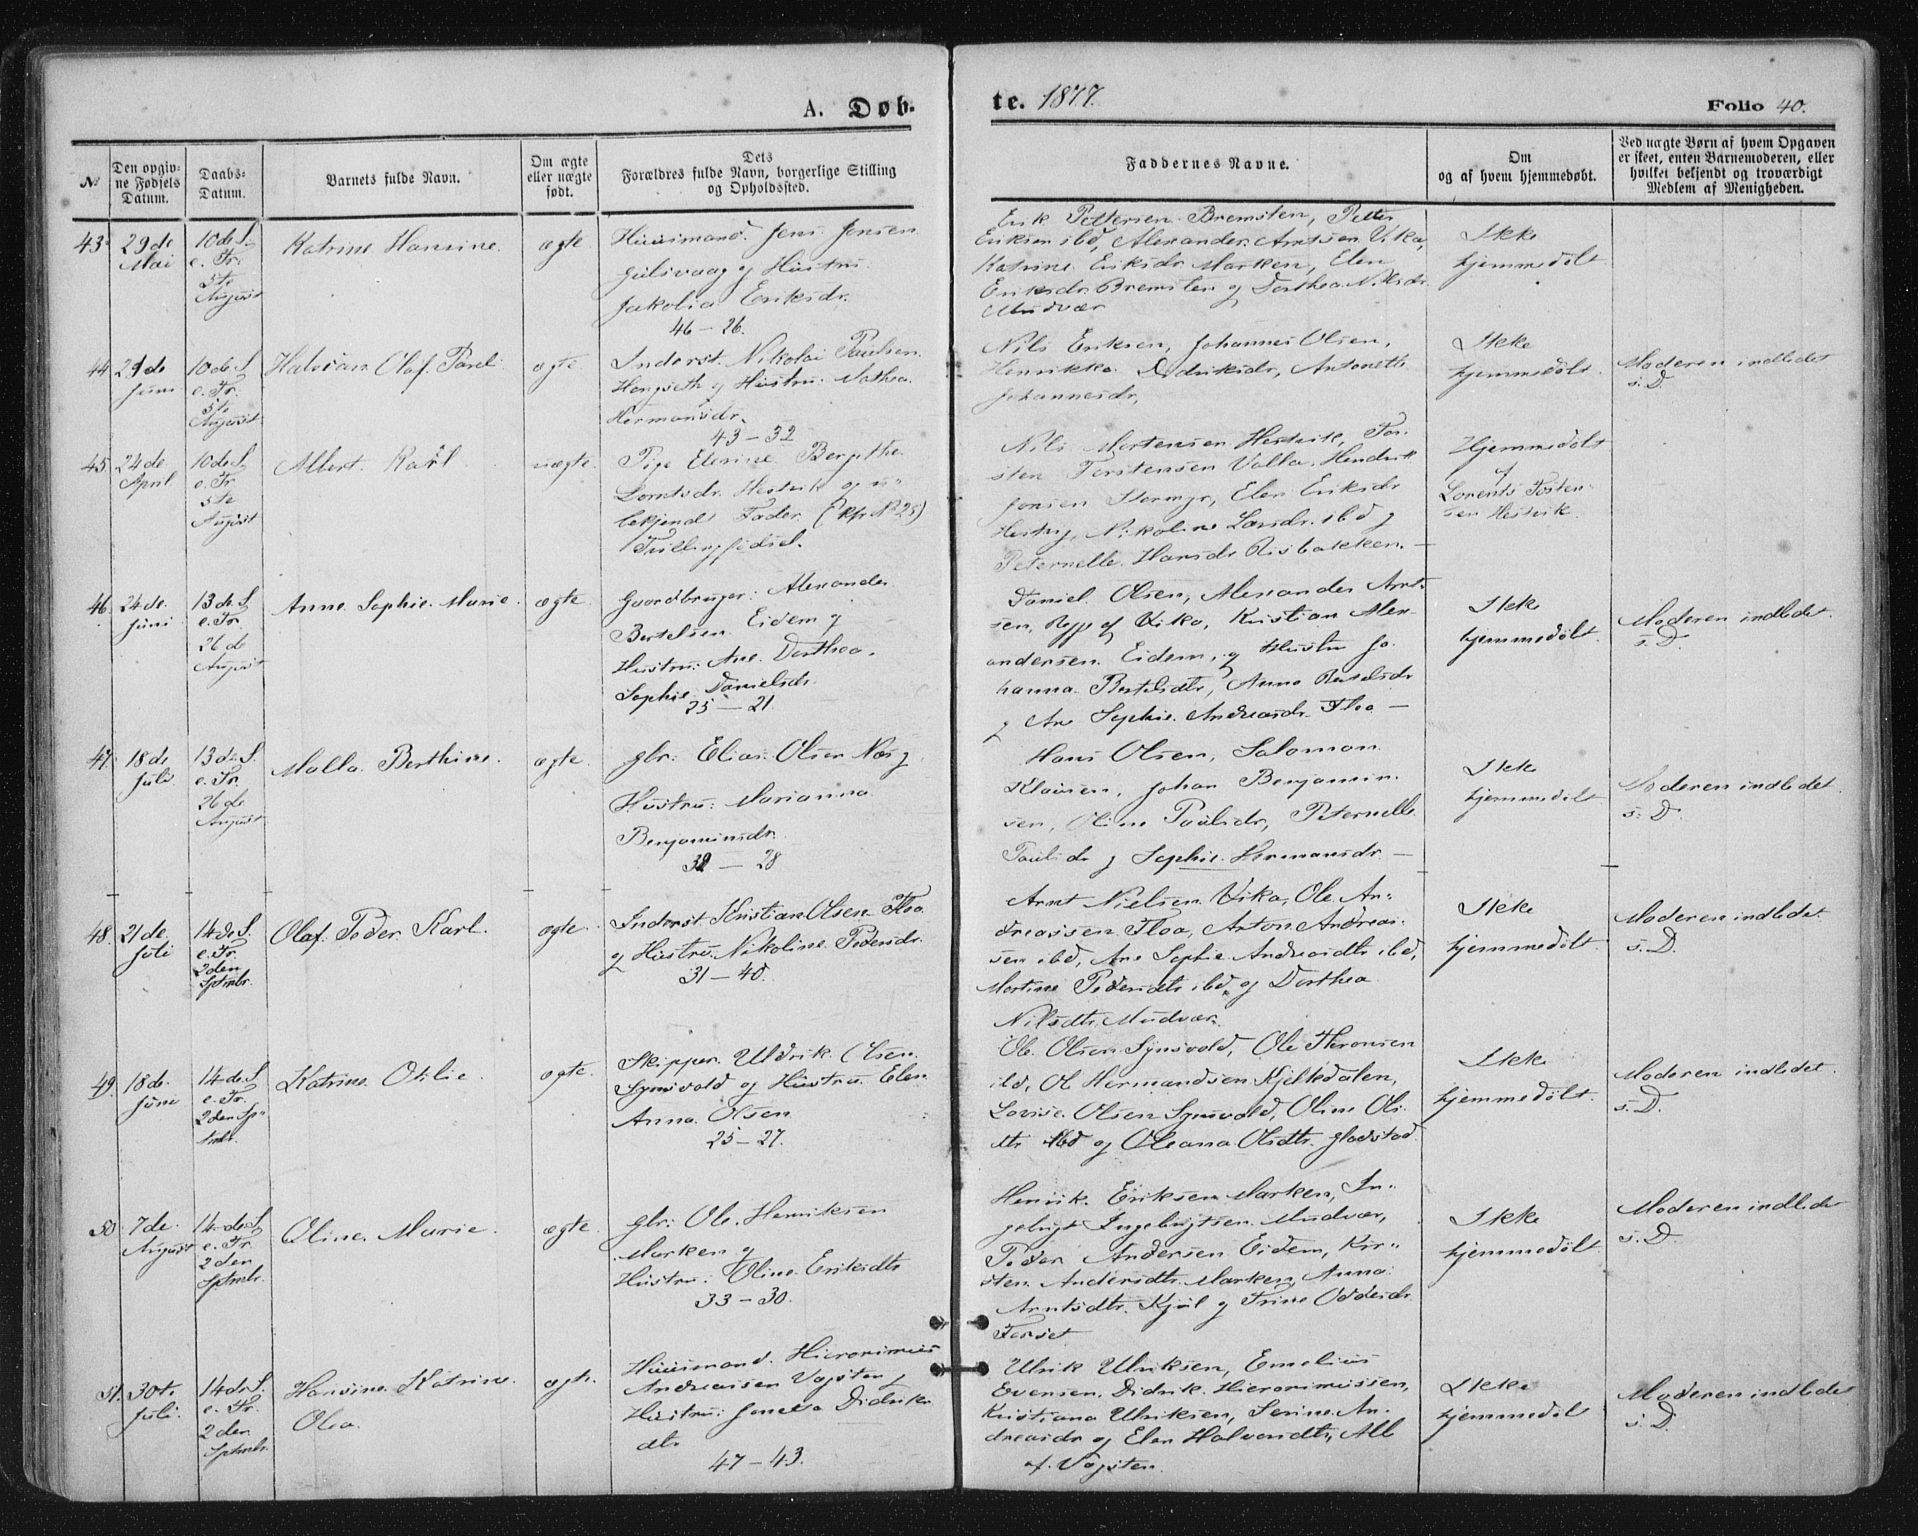 A. Døb-
te. 1877.
Folio 40.
№
Den opgiv-
ne Fødsels
Datum.
Daabs-
Datum.
Barnets fulde Navn.
Om ægte
eller uægte
født.
Dets
Forældres fulde Navn, borgerlige Stilling
og Opholdssted.
Faddernes Navne.
Om
og af hvem hjemmedøbt.
Ved uægte Børn af hvem Opgaven
er skeet, enten Barnemoderen, eller
hvilket bekjendt og troværdigt
Medlem af Menigheden.
43
29de
Mai
10de S.
e. Tr.
5te
August
Katrine Hansine.
ægte.
Huusmand. Jens Jensen
og Hustru
Jakobia Eriksdr.
46 – 26.
Erik Pettersen Bremsten, Petter
Eriksen ibd, Alexander Arntsen Vika,
Katrine Eriksdr Marken, Elen
Eriksdr. Bremsten og Dorthea Nilsdr.
Mudvær
Ikke
hjemmedøbt
44
29de
Juni
10de S
e. Tr.
5te
August
Olaf
ægte
Inderst. Nikolai Paulsen
og Hustru: Mathea
Hermansdr.
43 – 32
Nils Eriksen, Johannes Olsen,
Henrikka Didriksdr, Antonette
Johannesdr,
Ikke
hjemmedøbt.
Moderen indledet
s. D.
45
24de
April.
10de S
e. Tr
5te
August
Albert. Karl
uægte.
Pige Elerine Bergithe
Lorntsdr. Hestvik og u-
bekjendt Fader (kfr No 25)
Trillingfødsel.
Nils Mortensen Hestvik, Tor-
sten Torstensen Valla, Hendrik
Jonsen Stormyr, Elen Eriksdr
Hestvig, Nikoline Larsdr. ibd og
Peternelle Hansdr Risbakken. –
Hjemmedøbt
af
Lorents Tosten-
sen Hestvik.
46
24de.
Juni
13de S
e. Tr.
26de
August
Anne Sophie Marie.
ægte.
Gaardbruger: Alexander
Bertelsen Eidem og
Hustru: Ane Dorthea
Sophie Danielsdr
25 – 21.
Daniel Olsen, Alexander Arnt-
sen, begge af Vika, Kristian Alex-
andersen Eidem, og Hustru Jo-
hanna Bertelsdtr, Anne Bertelsdr
og Ane Sophie Andreasdr. Floa –
Ikke
hjemmedøbt.
Moderen indledet.
s. D.
47.
18de
Juli
13de S.
e. Tr.
26de
August
Malla Berthine.
ægte.
gbr: Elias Olsen Næs og
Hustru: Marianna
Benjaminsdr.
32 – 28
Hans Olsen, Salomon
Klausen, Johan Benjamin-
sen, Oline Paulsdr, Peternelle
Paulsdr og Sophie Hermansdr –
Ikke
hjemmedøbt
Moderen indledet.
s. D.
48.
21de
Juli
14de S
e. Tr.
2den
Sptmbr.
Olaf Peder Karl.
ægte.
Inderst Kristian Olsen Floa
og Hustru: Nikoline Pedersdr.
31 – 40.
Arnt Nielsen Vika, Ole An-
dreassen Floa, Anton Andreas-
sen ibd, Ane Sophie Andreasdtr ibd,
Martine Pedersdtr ibd og Dorthea
Nilsdtr. Mudvær.
Ikke
hjemmedøbt
Moderen indledet.
s. D.
49.
18de.
Juni
14de S
e. Tr.
2den Sp-
tmbr.
Katrine Otilie.
ægte.
Skipper Uldrik Olsen
Synsvold og Hustru Elen
Anna Olsen
25 – 27.
Ole Olsen Synsvold, Ole
ibd, Ole Hermandsen Kjelkdalen,
Lovise Olsen Synsvold, Oline Ols-
dtr ibd og Oleana Olsdtr. Gladstad.
Ikke
hjemmedøbt.
Moderen indledet.
s. D.
50.
7de.
August
14de S
e. Tr.
2den
Sptmbr.
Oline Marie.
ægte.
gbr: Ole Henriksen
Marken og
Hustru: Oline Eriksdtr
33 – 30.
Henrik Eriksen Marken, In-
gebrigt Ingebrigtsen Mudvær,
Peder Andersen Eidem, Kir-
sten Andersdtr. Marken, Anna
Arntsdtr. Kjøl og Trine Oddesdr
Forset
Ikke
hjemmedøbt
Moderen indledet
s. D.
51.
30te
Juli.
14de S.
e. Tr.
2den
Sptmbr.
Hansine Katrine
Olea.
ægte.
Huusmand. Hieronimus
Andreassen Vagsten og
Hustru: Didriks-
dtr
47 – 43.
Ulrik Ulriksen, Emelius
Evensen, Didrik Hieronimussen,
Kristiana Ulriksen, Serine An-
dreasdr og Elen Halvorsdtr, Alle
af Vagsten.
Ikke
hjemmedøbt
Moderen indledet
s. D.